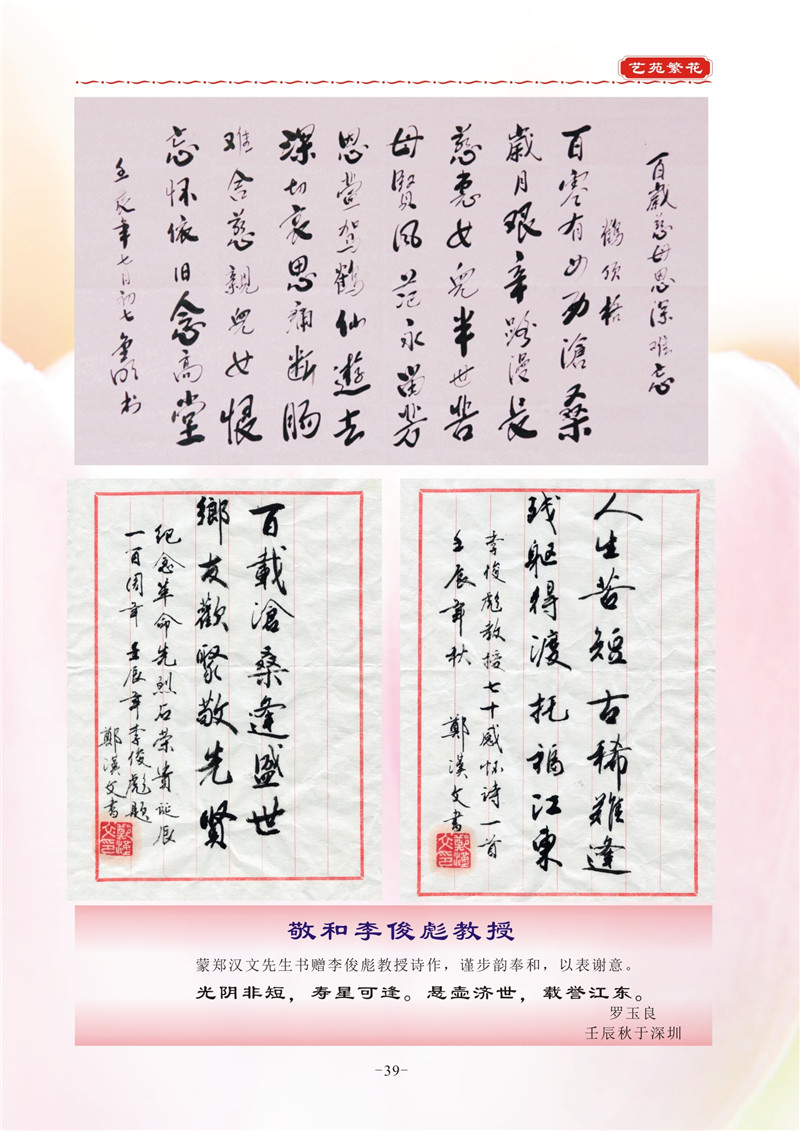 艺苑繁花
百歲慈母恩深难忘
鹤顶格
百零有四历滄桑
歲月艰辛路漫長
慈惠女兒半世苦
母賢风范永留芳
恩萱驾鶴仙遊去
深切哀思痛断肠
难舍慈親兒女恨
忘怀依旧念高堂
壬辰年七月初七
人生苦短古稀难逢
残躯得渡托福江東
李俊彪教授七十感怀诗一首
壬辰年秋
鄭漢文書
百載滄桑逢盛世
鄉友歡聚敬先賢
纪念革命先烈石荣贵诞辰
一百周年 壬辰年李俊彪题
鄭漢文書
敬和李俊彪教授
蒙郑汉文先生书赠李俊彪教授诗作，谨步韵奉和，以表谢意。
光阴非短，寿星可逢。悬壶济世，载誉江东。
罗玉良
壬辰秋于深圳
-39-